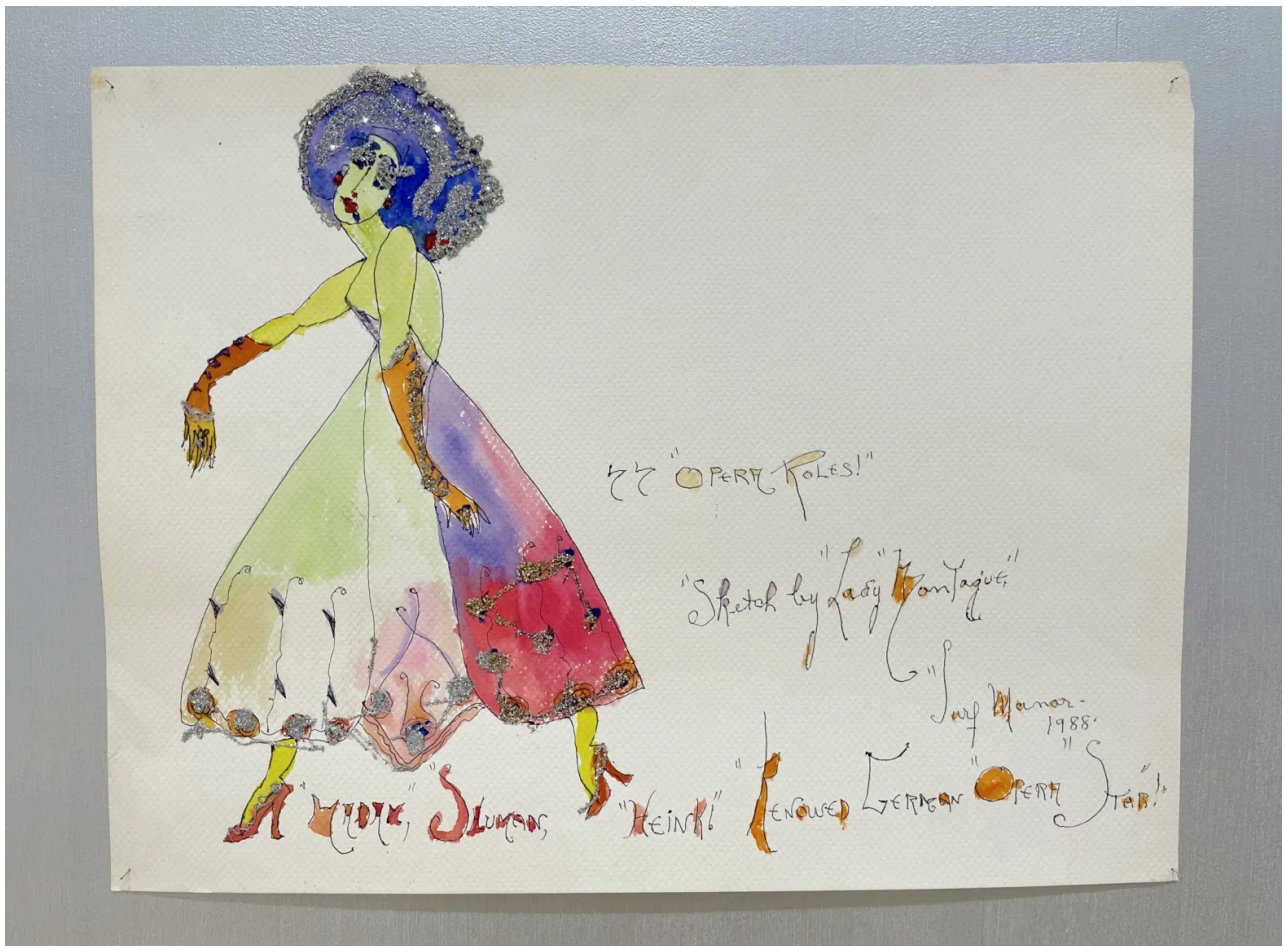 "Opera Roles!"
"Sketch by "Lady" Montague,"
"Surf Manor.
1988."
"Sluman, "Heink!" "Renowed German "Opera" Star!"